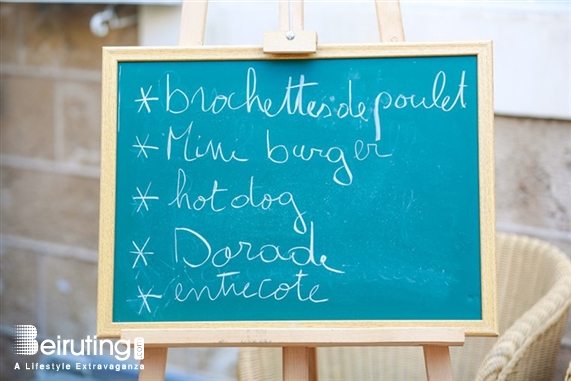 * Brochettes de poulet
* Mini burger
* hot dog
* Dorade
* entrecote
Beiruting
A Lifestyle Extravaganza